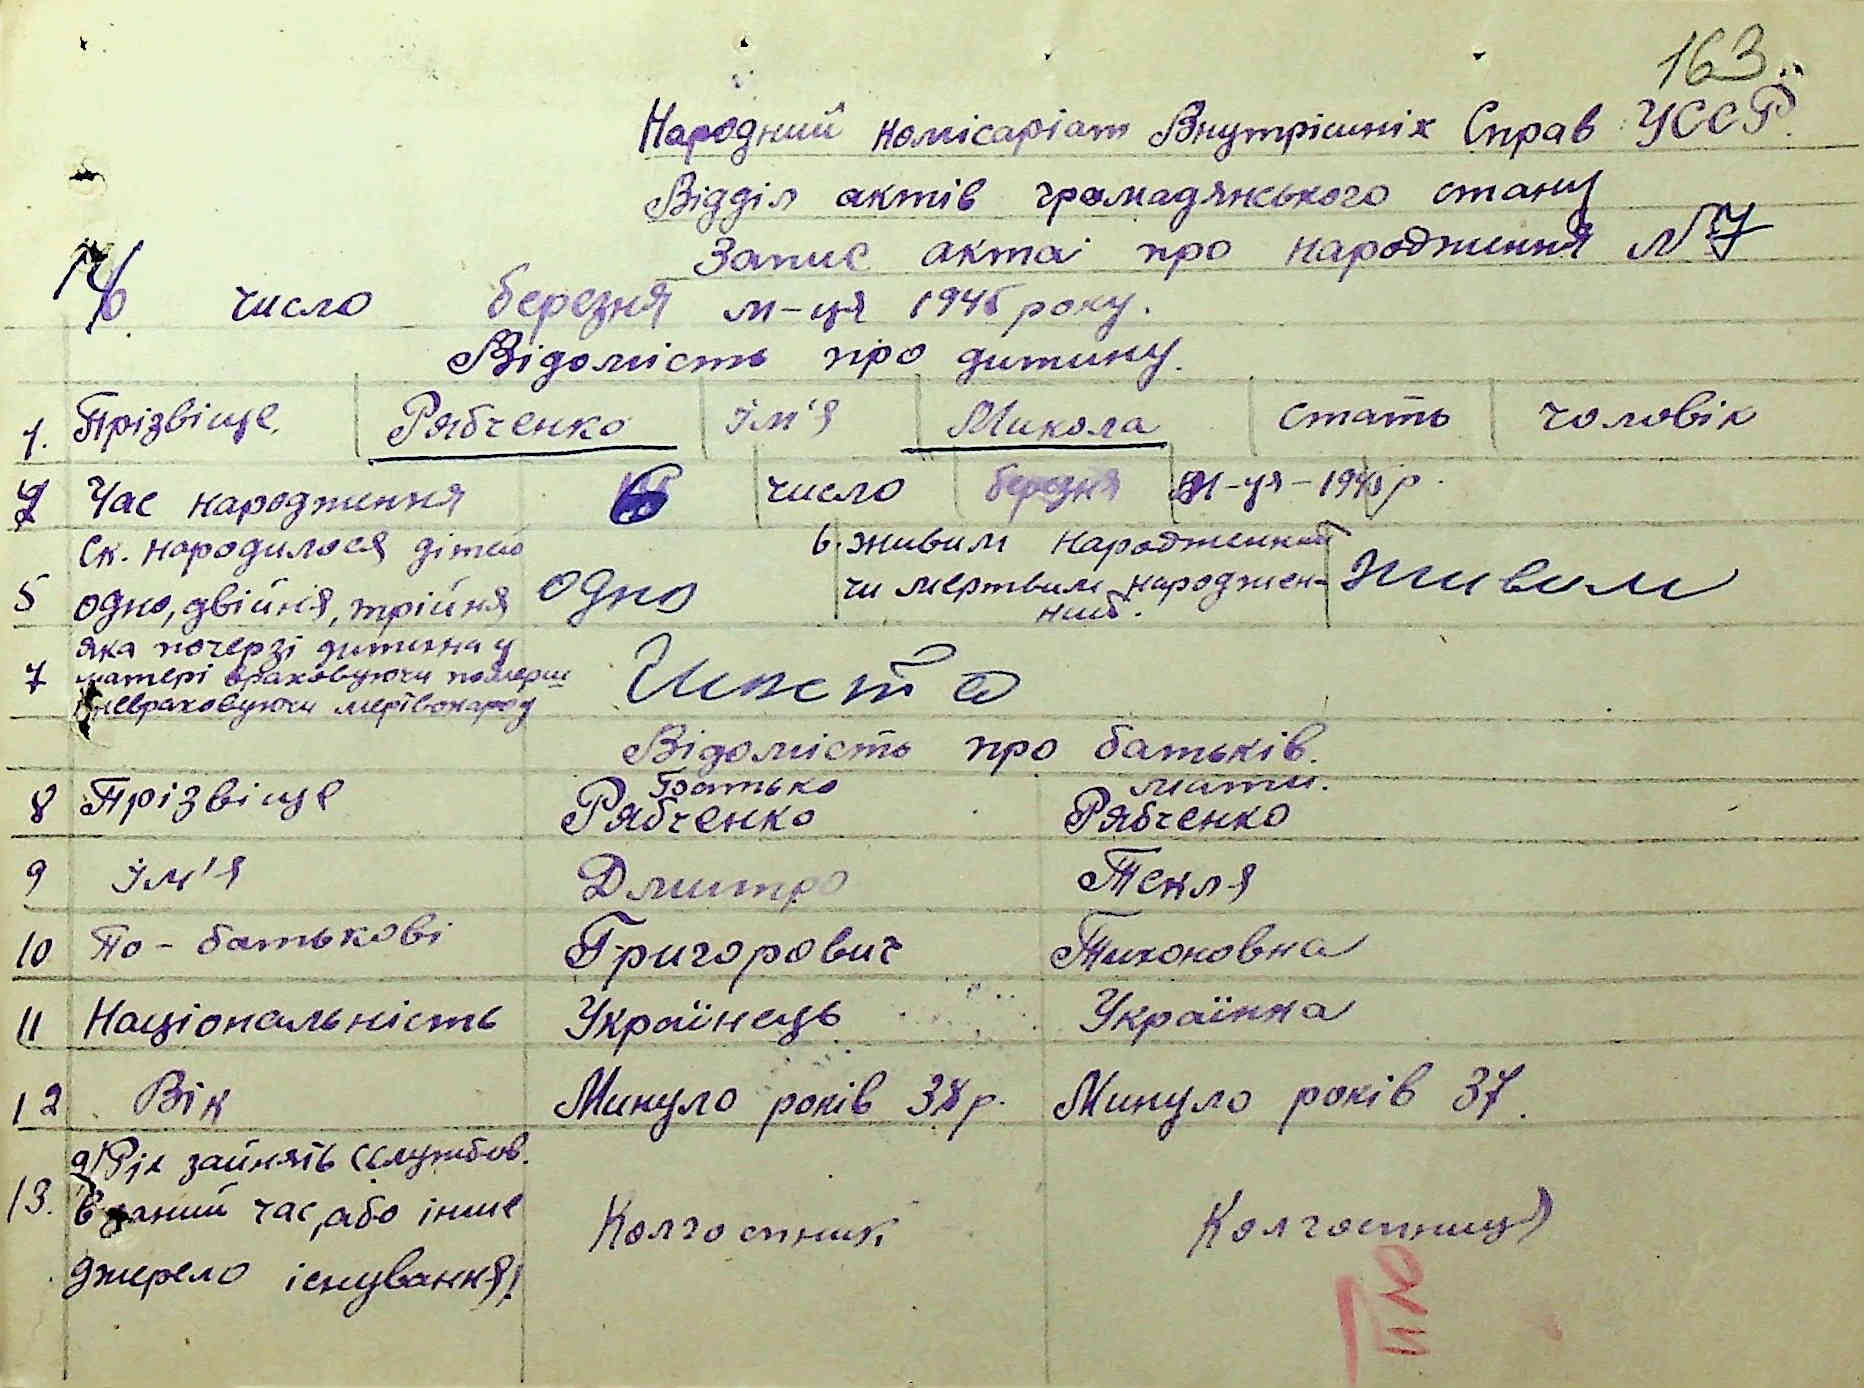 163.
Народний комісаріат Внутрішніх Справ УССР.
Відділ актів громадянського стану
Запис акта про народження №7
число березня м-ця 1945 року.
Відомість про дитину.
1. Прізвіще. Рябченко ім'я Микола стать чоловік
2 Час народження 6 число березня м-ця - 1945 р.
5 Ск. народилося дітей одно, двійня, трійня одно 6. живим народжений чи мертвим народжен-ний. живим
7 яка почерзі дитина у матері враховуючи померш невраховуючи мертвонарод Шоста
Відомість про батьків.
Батько мати.
8 Прізвіще Рябченко Рябченко
9 ім'я Дмитро Текля
10 По-батькові Григорович Тихоновна
11 Національність Українець Українка
12 Вік Минуло років 38 р. Минуло років 37.
13. а/ Рід занять (службов. В даний час, або інше джерело існування) Колгоспник Колгоспниця